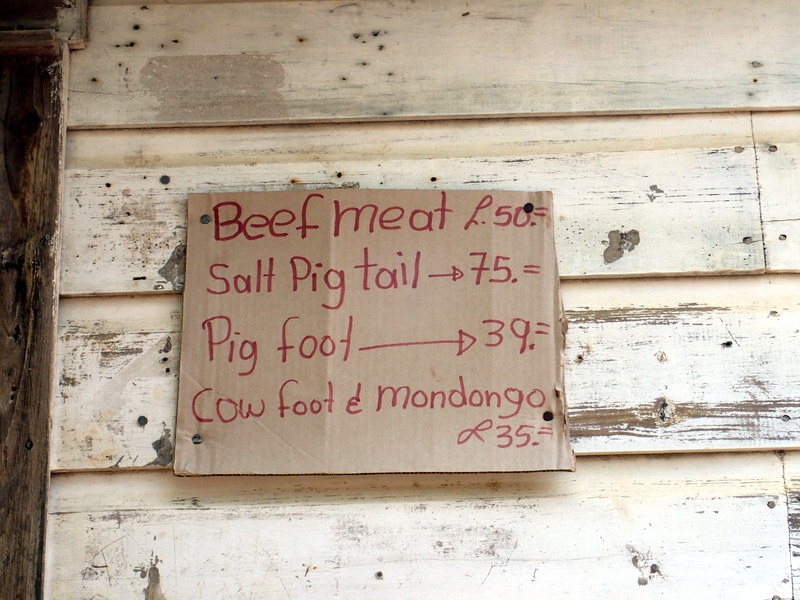 Beef meat L.50.=
Salt Pig tail → 75.=
Pig foot → 39.=
Cow foot & mondongo
L 35.=